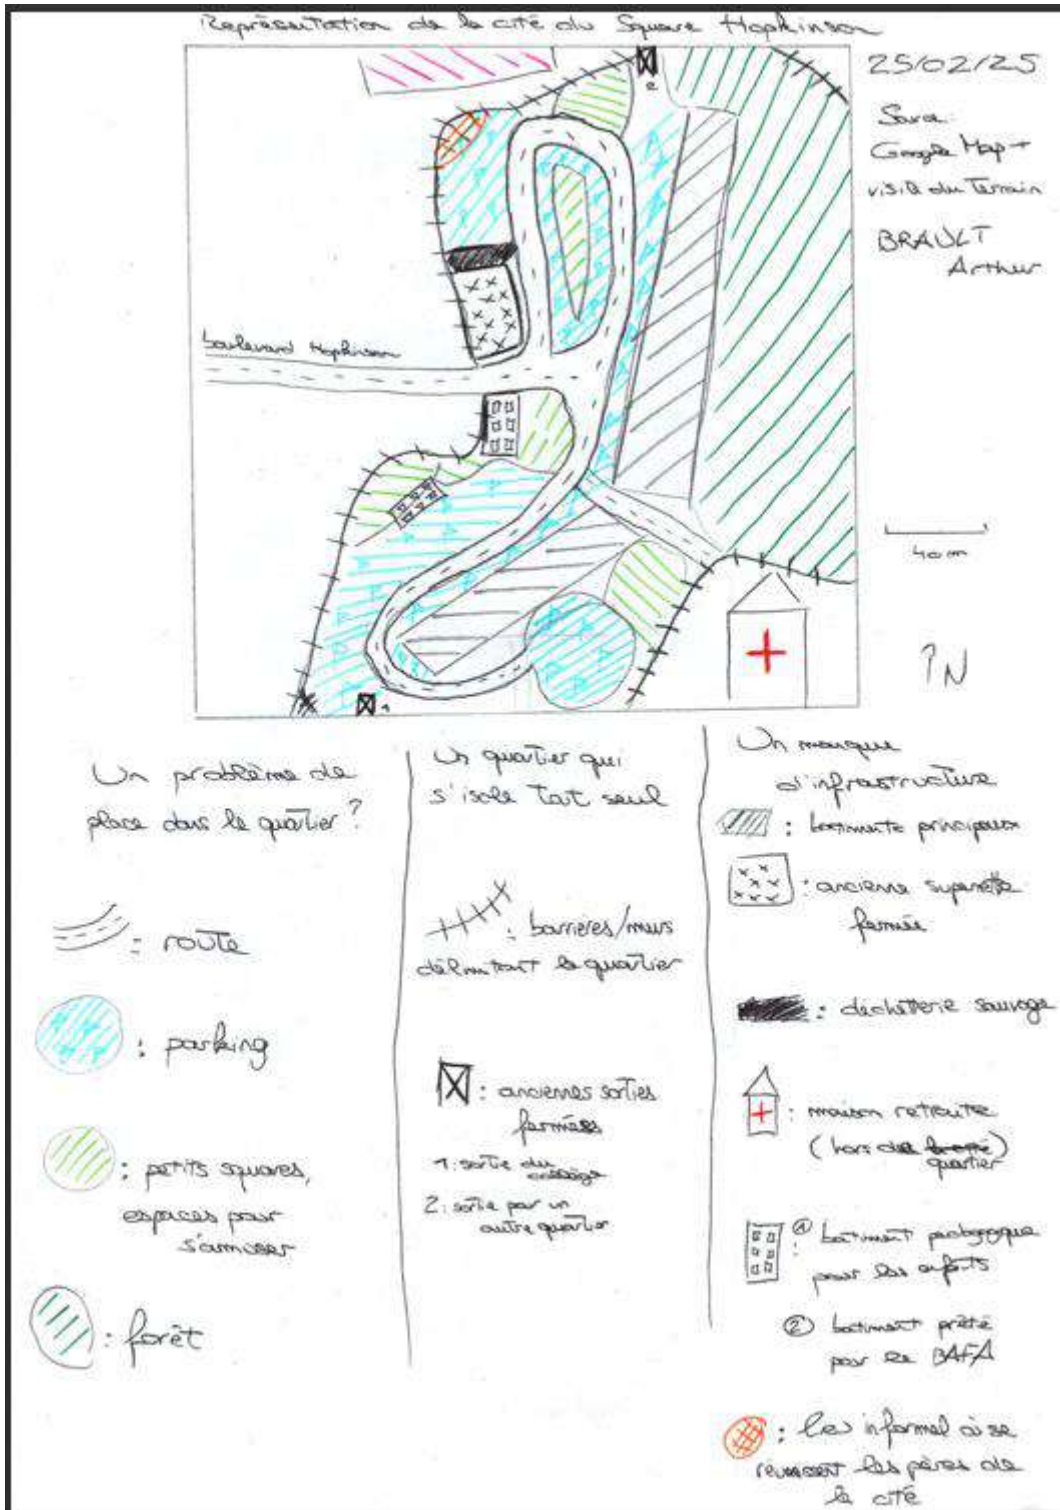 Représentation de la cité du Square Hopkinson
25/02/25
Source:
Google Map +
visite du Terrain
BRAULT
Arthur
2
boulevard Hopkinson
40m
N
1
Un problème de
place dans le quartier?
: route
: parking
: petits squares,
espaces pour
s'amuser
: forêt
Un quartier qui
s'isole tout seul
: barrières/murs
délimitant le quartier
: anciennes sorties
fermées
1: sortie du
collège
2: sortie par un
autre quartier
Un manque
d'infrastructure
: batiments principaux
: ancienne superette
fermée
: déchetterie sauvage
: maison retraite
(hors de quartier)
: ① batiment pédagogique
pour les enfants
② batiment prêté
pour le BAFA
: lieu informel où se
réunissent les pères de
la cité